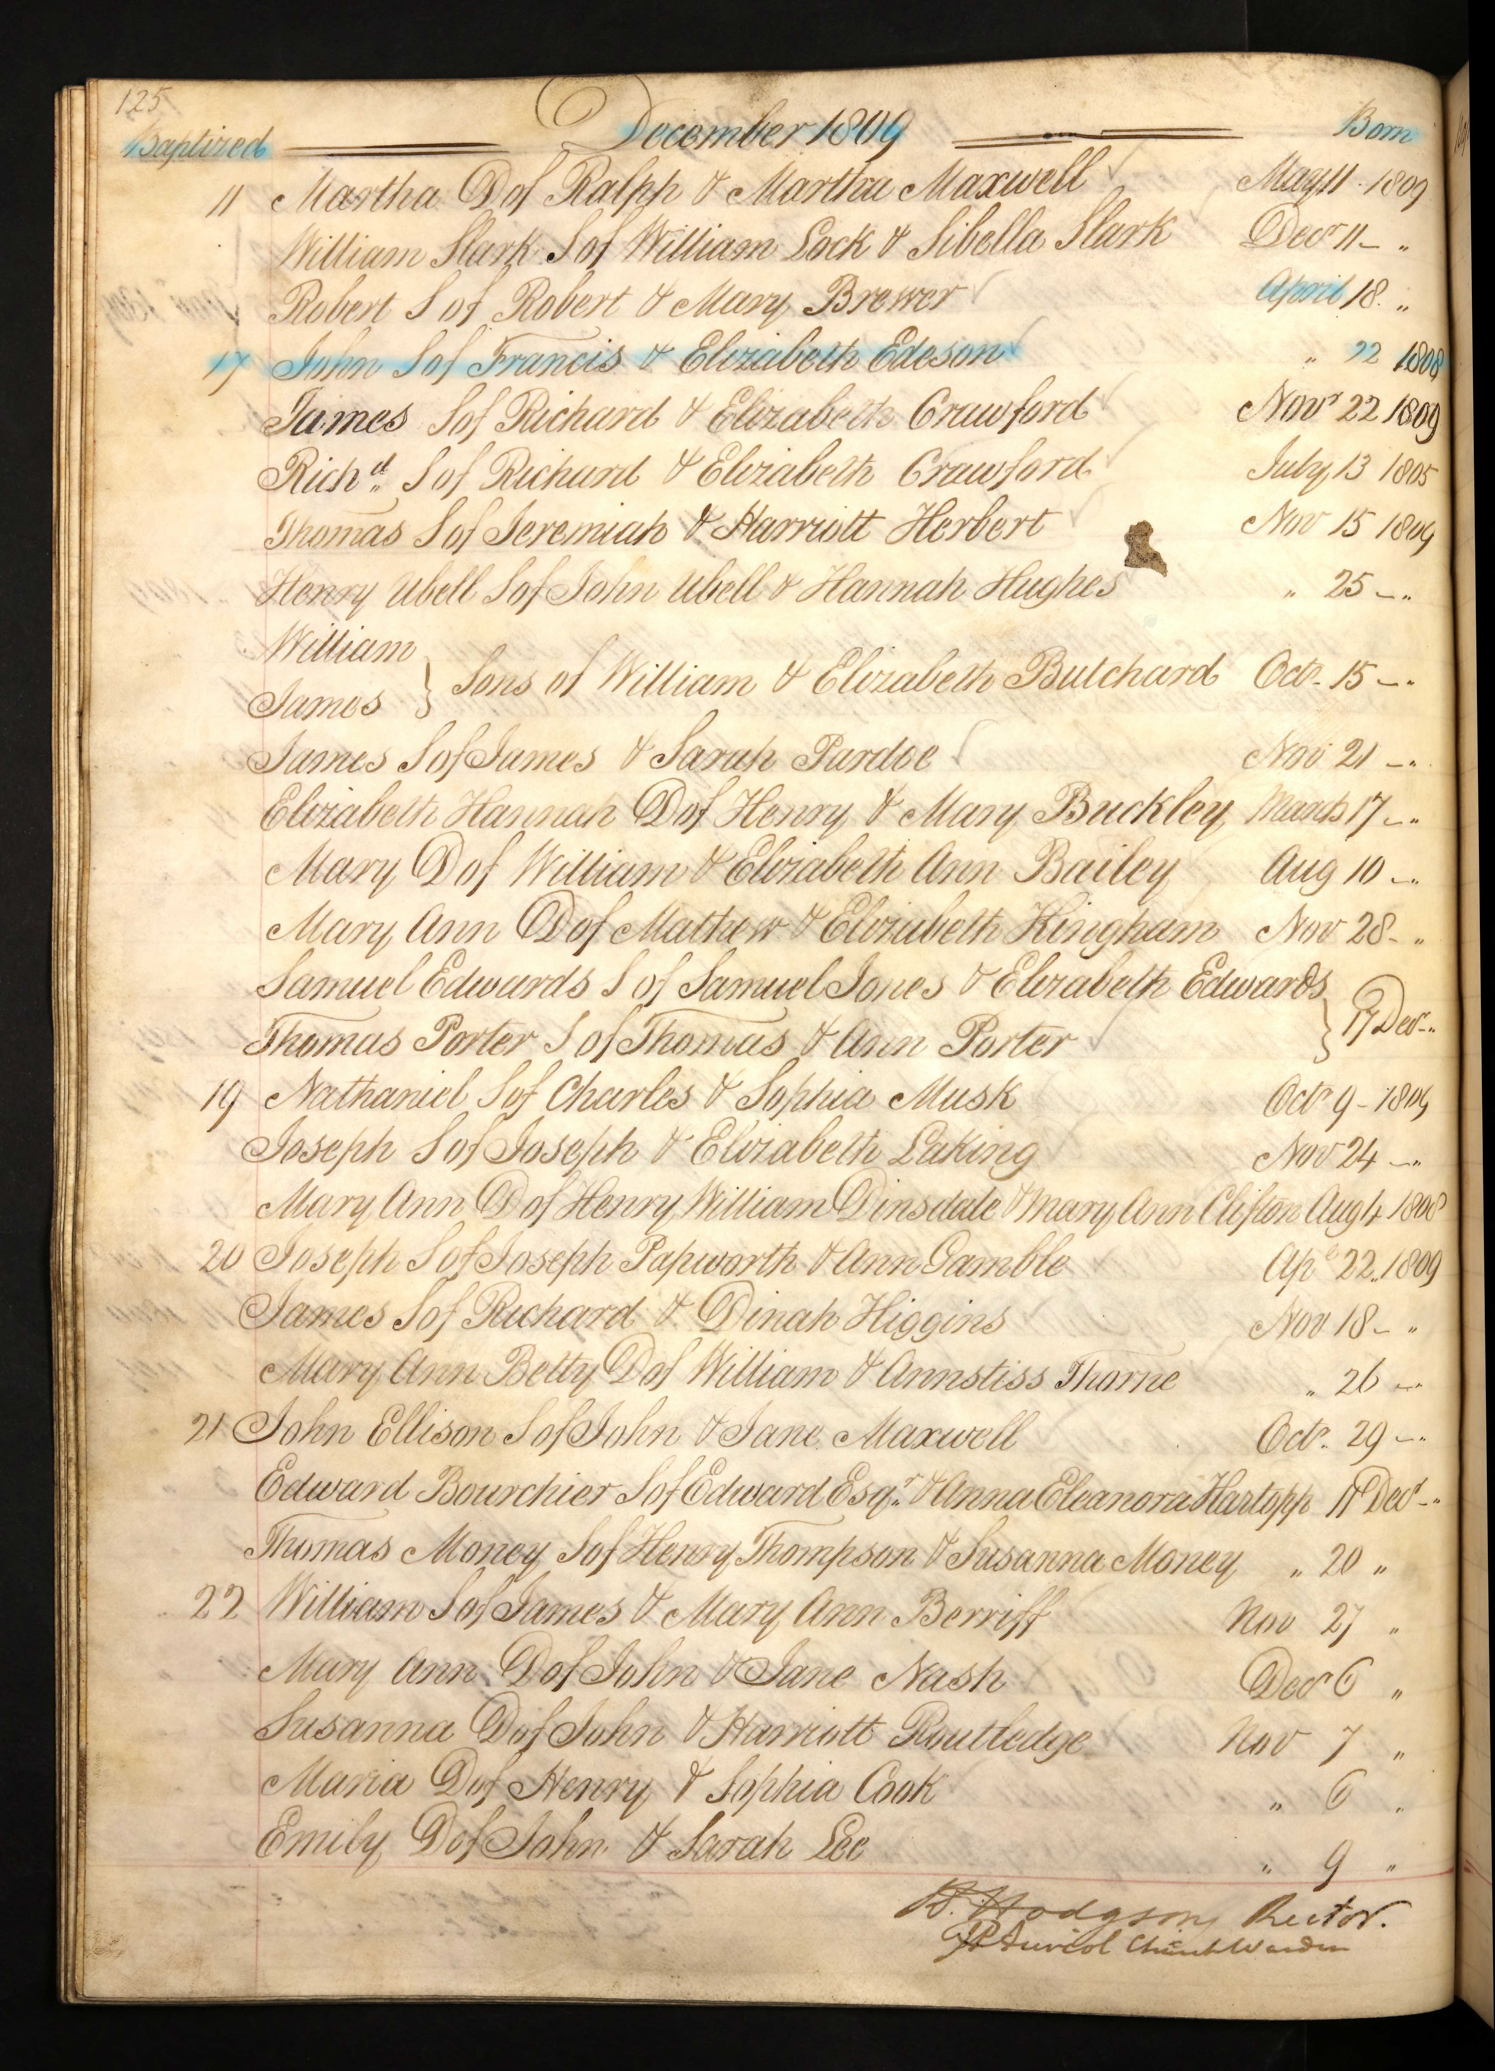 125
Baptized December 1809 Born
11 Martha D of Ralph & Martha Maxwell May 11 1809
William Slark S of William Lock & Sibella Slark Decr 11 - "
Robert S of Robert & Mary Brewer April 18 "
17 John S of Francis & Elizabeth Edeson " 22 1808
James S of Richard & Elizabeth Crawford Novr 22 1809
Richd S of Richard & Elizabeth Crawford July 13 1805
Thomas S of Jeremiah & Harriott Herbert Nov 15 1809
Henry Ubell S of John Ubell & Hannah Hughes " 25 - "
William
James } Sons of William & Elizabeth Butchard Octr 15 - "
James S of James & Sarah Pardoe Nov 21 - "
Elizabeth Hannah D of Henry & Mary Buckley March 17 - "
Mary D of William & Elizabeth Ann Bailey Aug 10 - "
Mary Ann D of Mathew & Elizabeth Kingham Nov 28 - "
Samuel Edwards S of Samuel Jones & Elizabeth Edwards
Thomas Porter S of Thomas & Ann Porter } 17 Decr - "
19 Nathaniel S of Charles & Sophia Musk Octr 9 - 1809
Joseph S of Joseph & Elizabeth Laking Nov 24 - "
Mary Ann D of Henry William Dinsdale & Mary Ann Clifton Aug 4 1808
20 Joseph S of Joseph Papworth & Ann Gamble Apl 22 " 1809
James S of Richard & Dinah Higgins Nov 18 - "
Mary Ann Betty D of William & Annstiss Thorne " 26 - "
21 John Ellison S of John & Jane Maxwell Octr 29 - "
Edward Bourchier S of Edward Esqr & Anna Eleanora Hartopp 11 Decr - "
Thomas Money S of Henry Thompson & Susanna Money " 20 "
22 William S of James & Mary Ann Berriff Nov 27 "
Mary Ann D of John & Jane Nash Decr 6 "
Susanna D of John & Harriott Routledge Nov 7 "
Maria D of Henry & Sophia Cook " 6 "
Emily D of John & Sarah Lee " 9 "
Hodgson Rector.
Church Warden